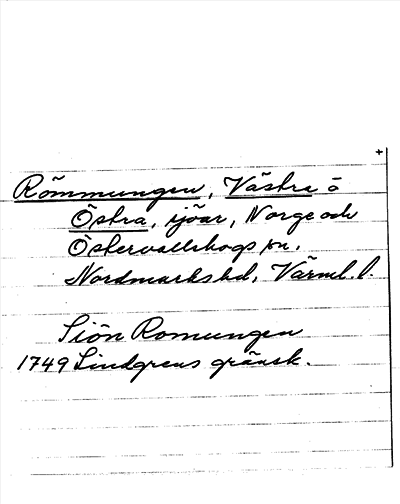 +
Römmungen, Västra o
Östra, sjöar, Norge och
Östervallskogs sn.
Nordmarks hd, Värml. l.
Siön Romungen
1749 Lindgrens gränsk.